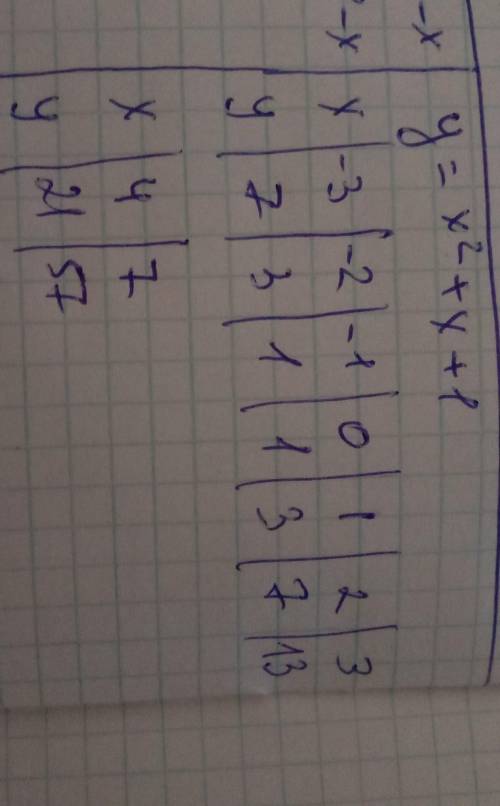 -x
-x
y = x² + x + 1
x | -3 | -2 | -1 | 0 | 1 | 2 | 3
y | 7 | 3 | 1 | 1 | 3 | 7 | 13
x | 4 | 7
y | 21 | 57